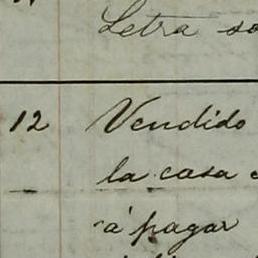 Letra so
12 Vendido
la casa
á pagar